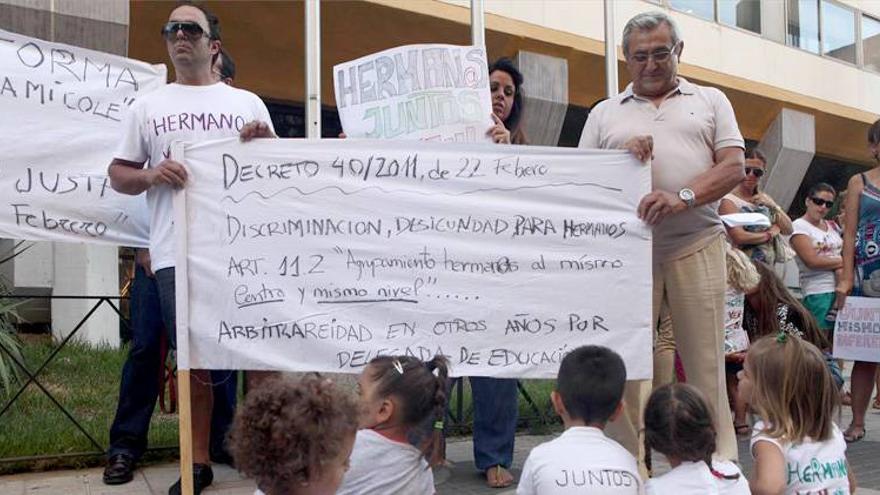 ORMA
AMICOLE"
JUSTA
Febrero"
HERMANO
HERMAN@S
JUNTOS
DECRETO 40/2011, de 22 FEBERO
DISCRIMINACION, DESIGUNDAD PARA HERMANOS
ART. 11.2 "Agrupamiento hermanos al mismo
Centro y mismo nivel"......
ARBITRAREIDAD EN OTROS AÑOS POR
DELEGADA DE EDUCACIÓN
MISMO
JUNTOS
HERMAN